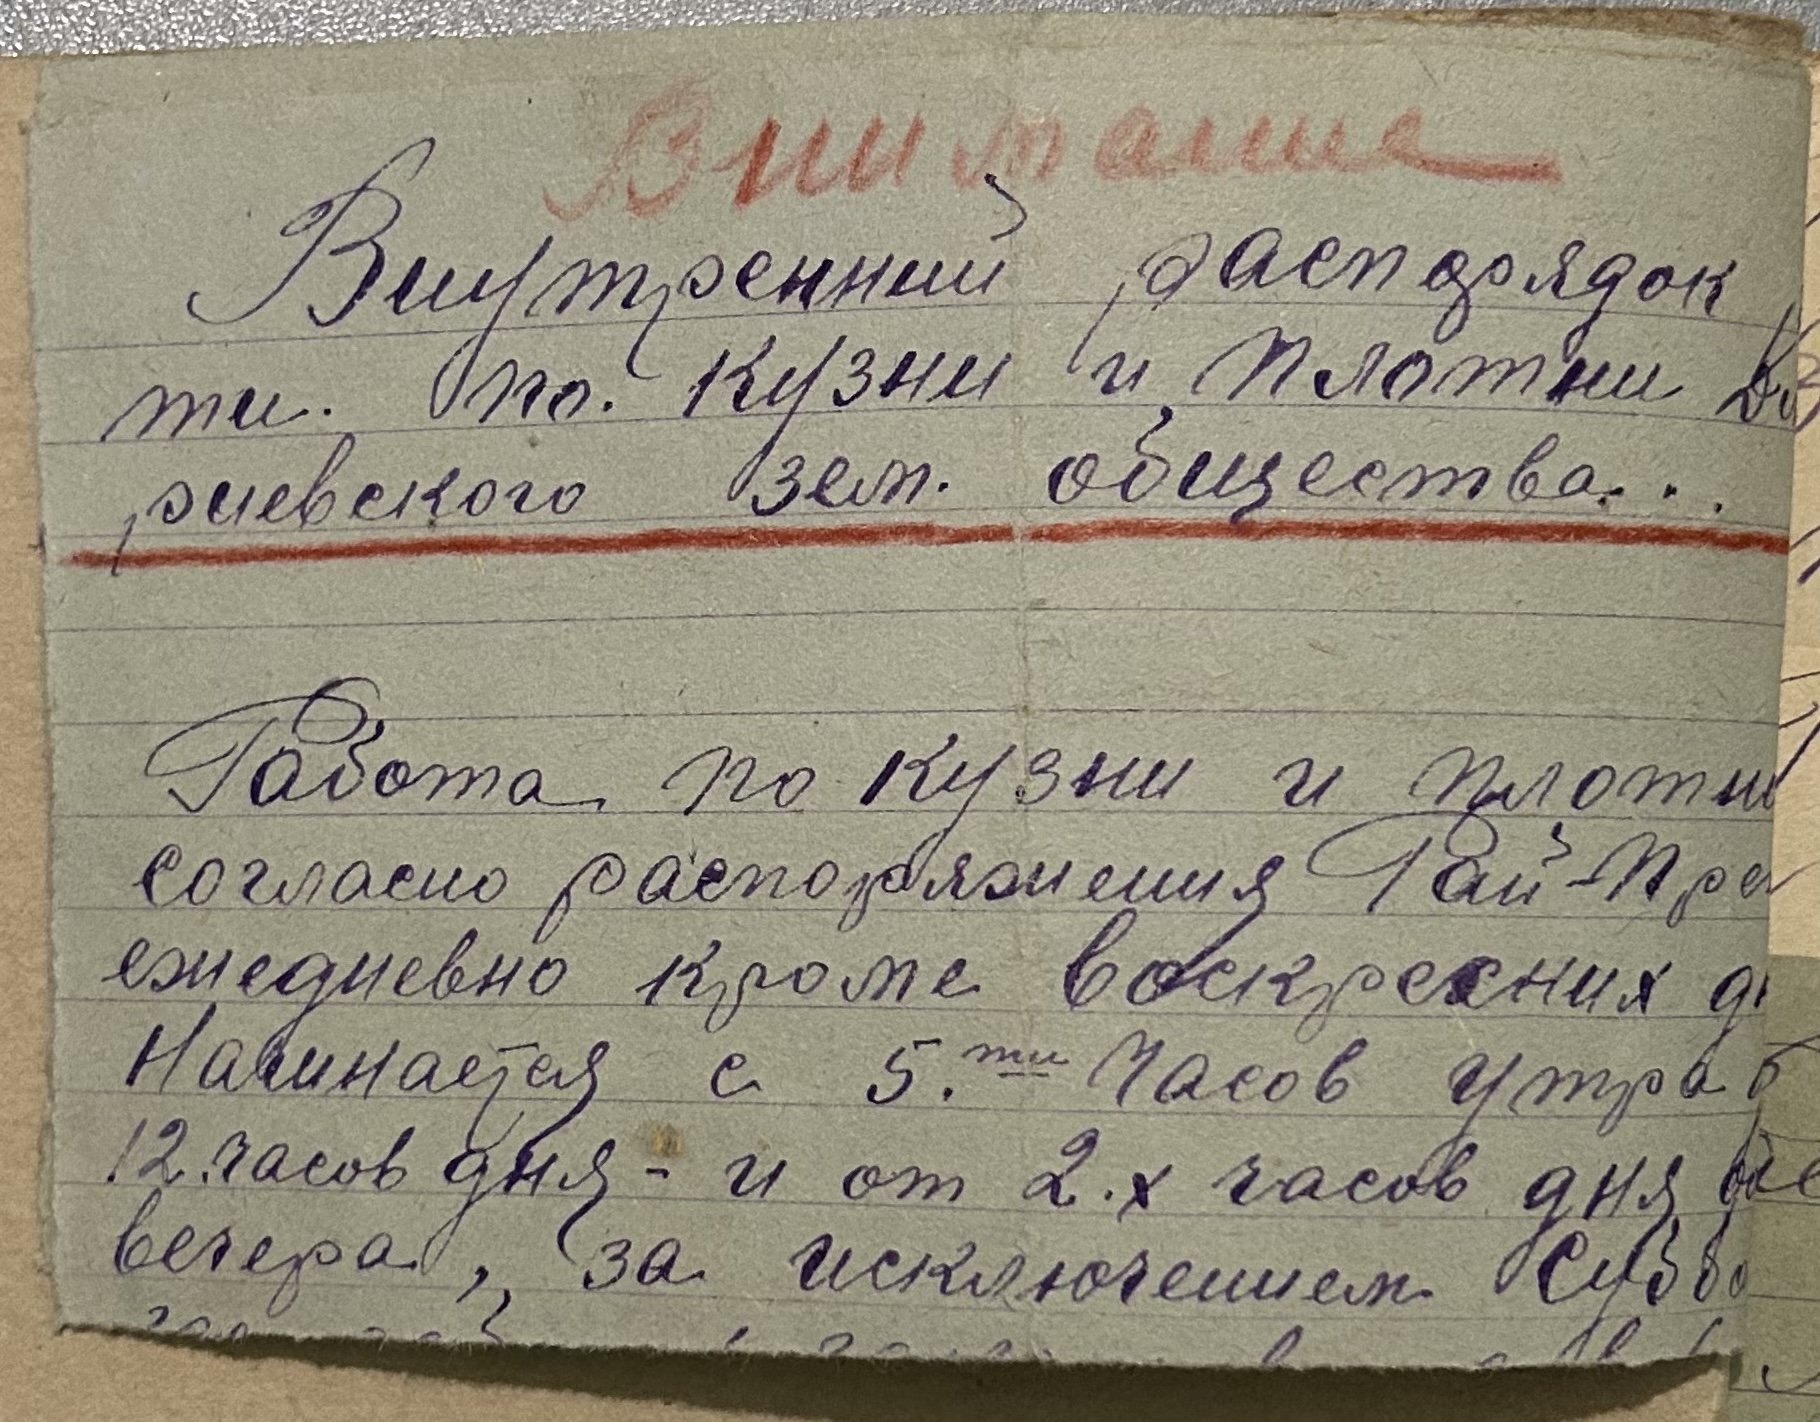 Внимание
Внутренний распорядок
ти. по. Кузни и Плотни
риевского зем. общества...
Работа по Кузни и плотни
согласно распоряжения Рай-Пра
ежедневно кроме воскресних
Начинается с 5.ти часов утра
12.часов дня - и от 2.х часов дня
вечера, за исключением Субbo